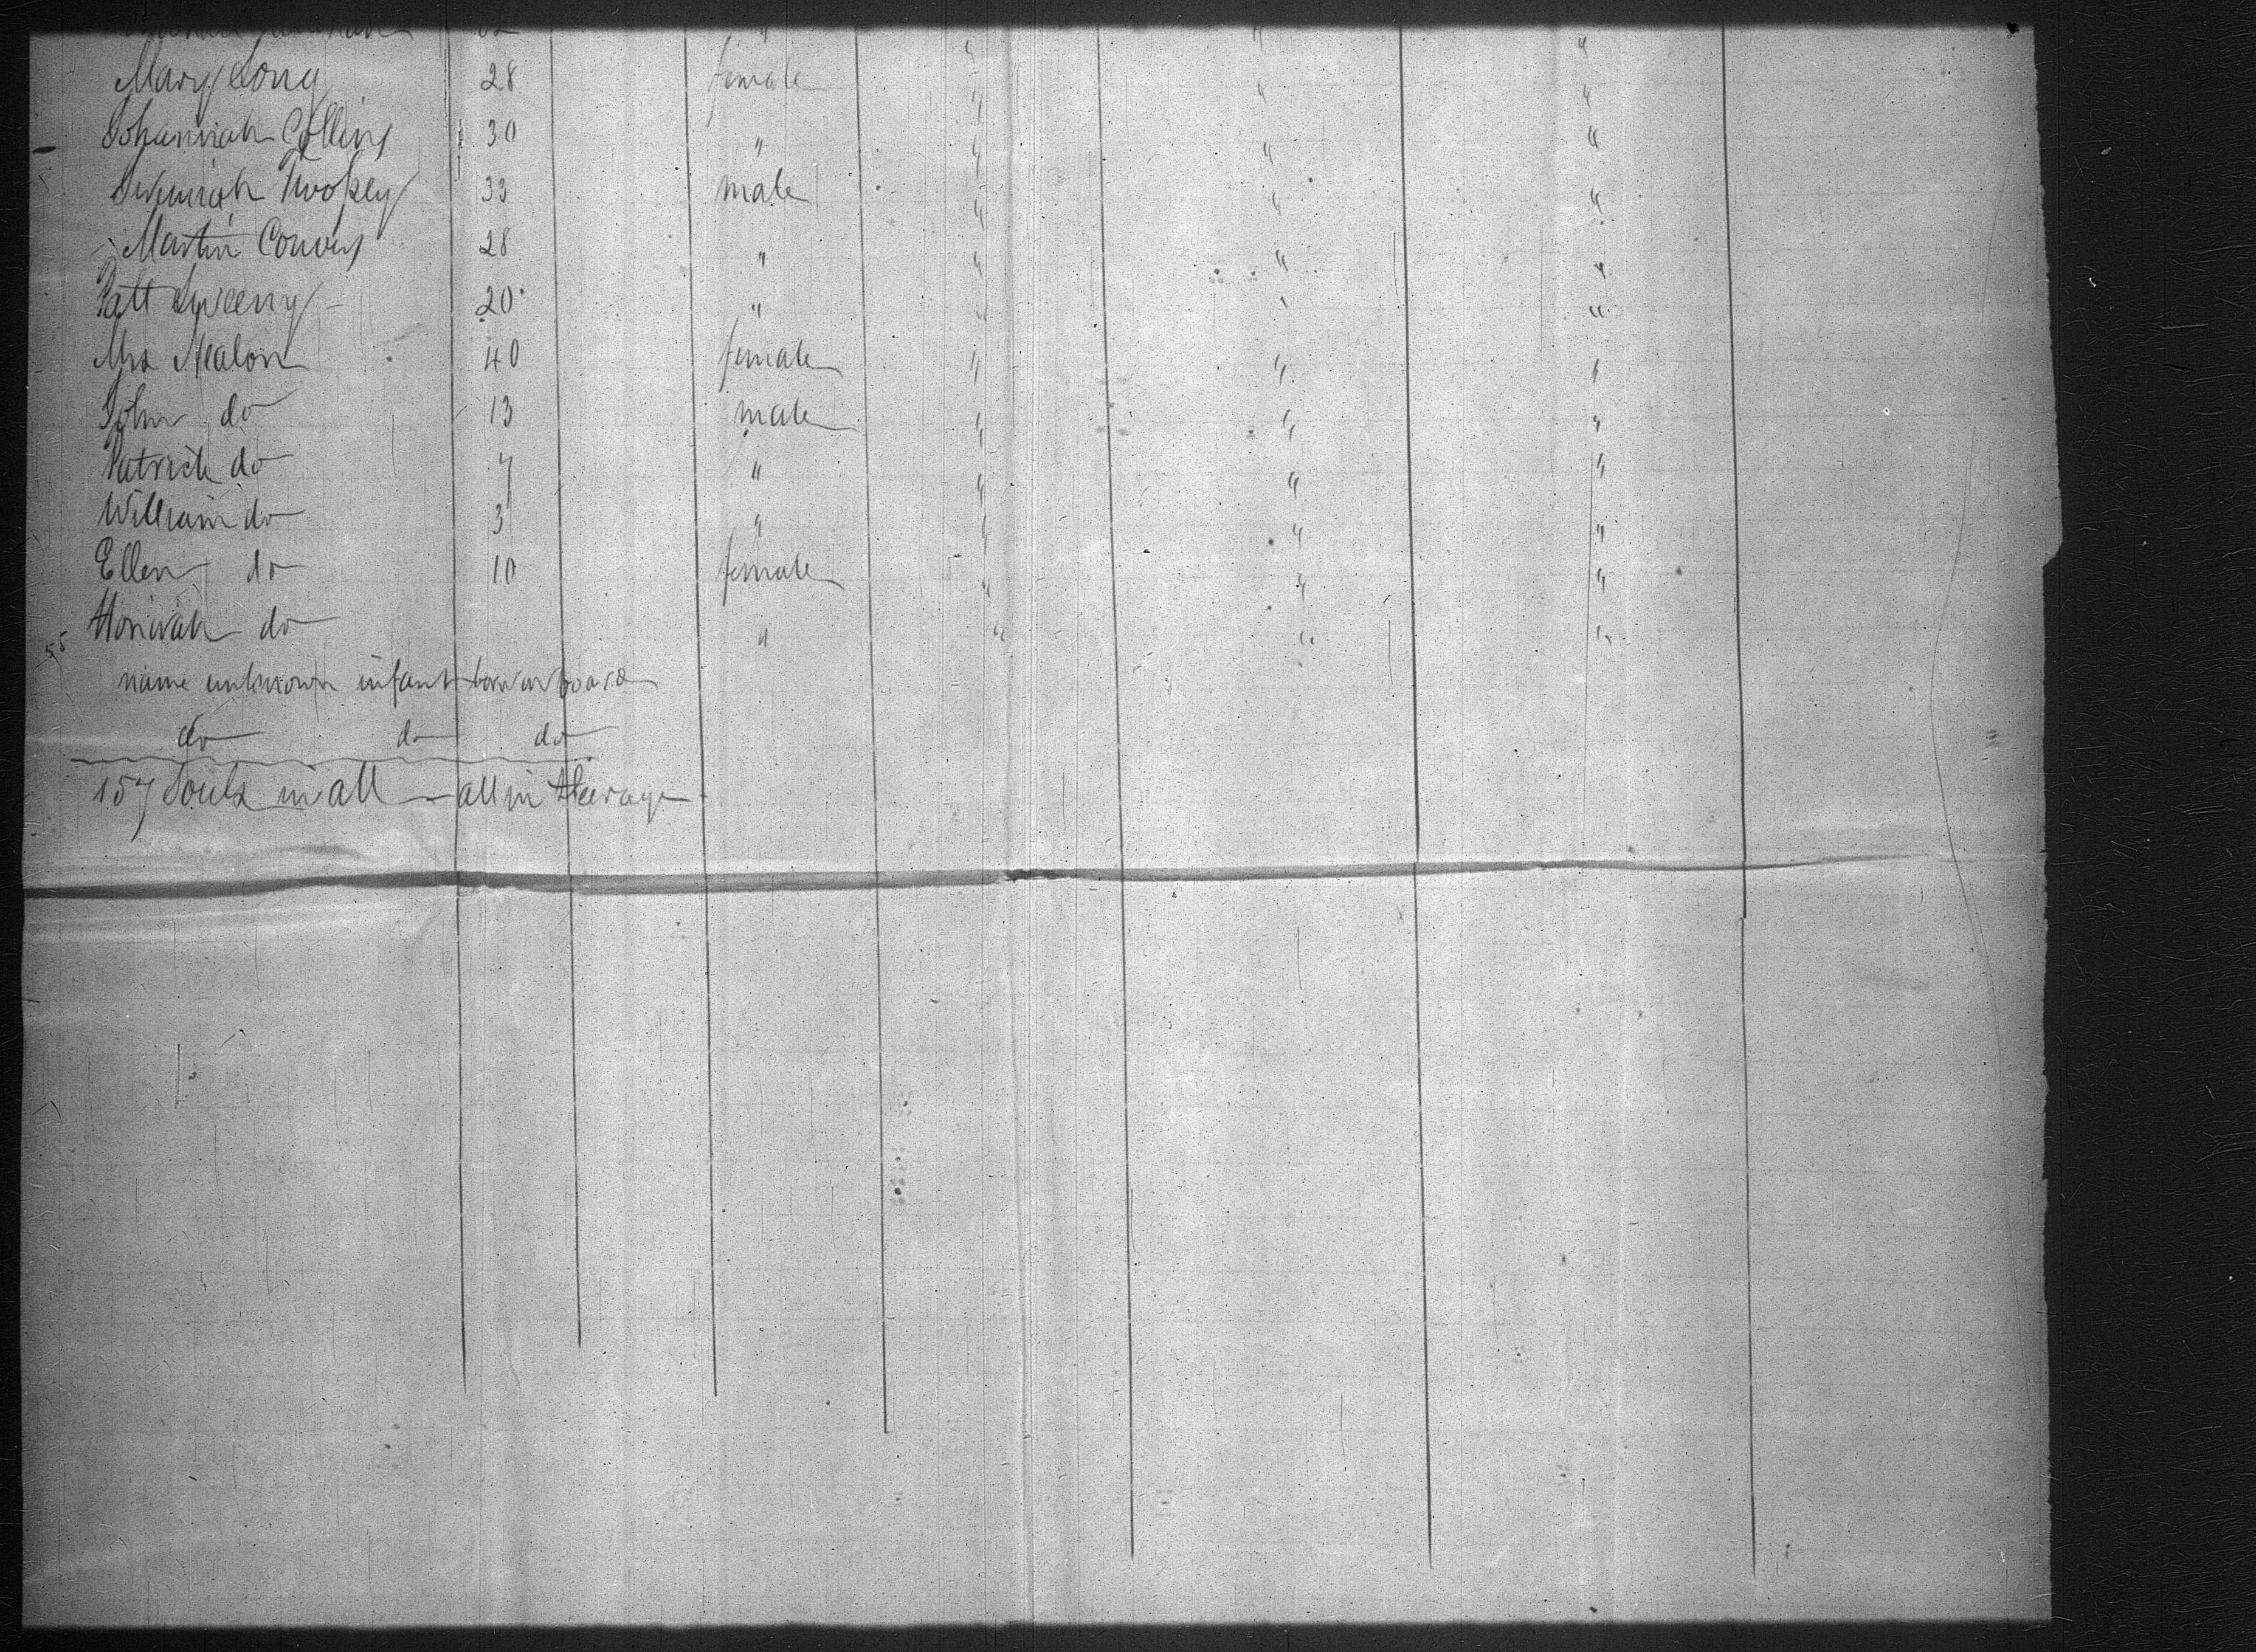 Mary Long 28 female " " "
Johannah Collins 30 " " " "
33 male " " "
Martin Convey 28 " " " "
Patt Sweeny 20 " " " "
Mrs Nealon 40 female " " "
John do 13 male " " "
Patrick do 7 " " " "
William do 3 " " " "
Ellen do 10 female " " "
Honorah do " " " "
55
name unknown infant born on board
do do do
157 Souls in all — all in Steerage